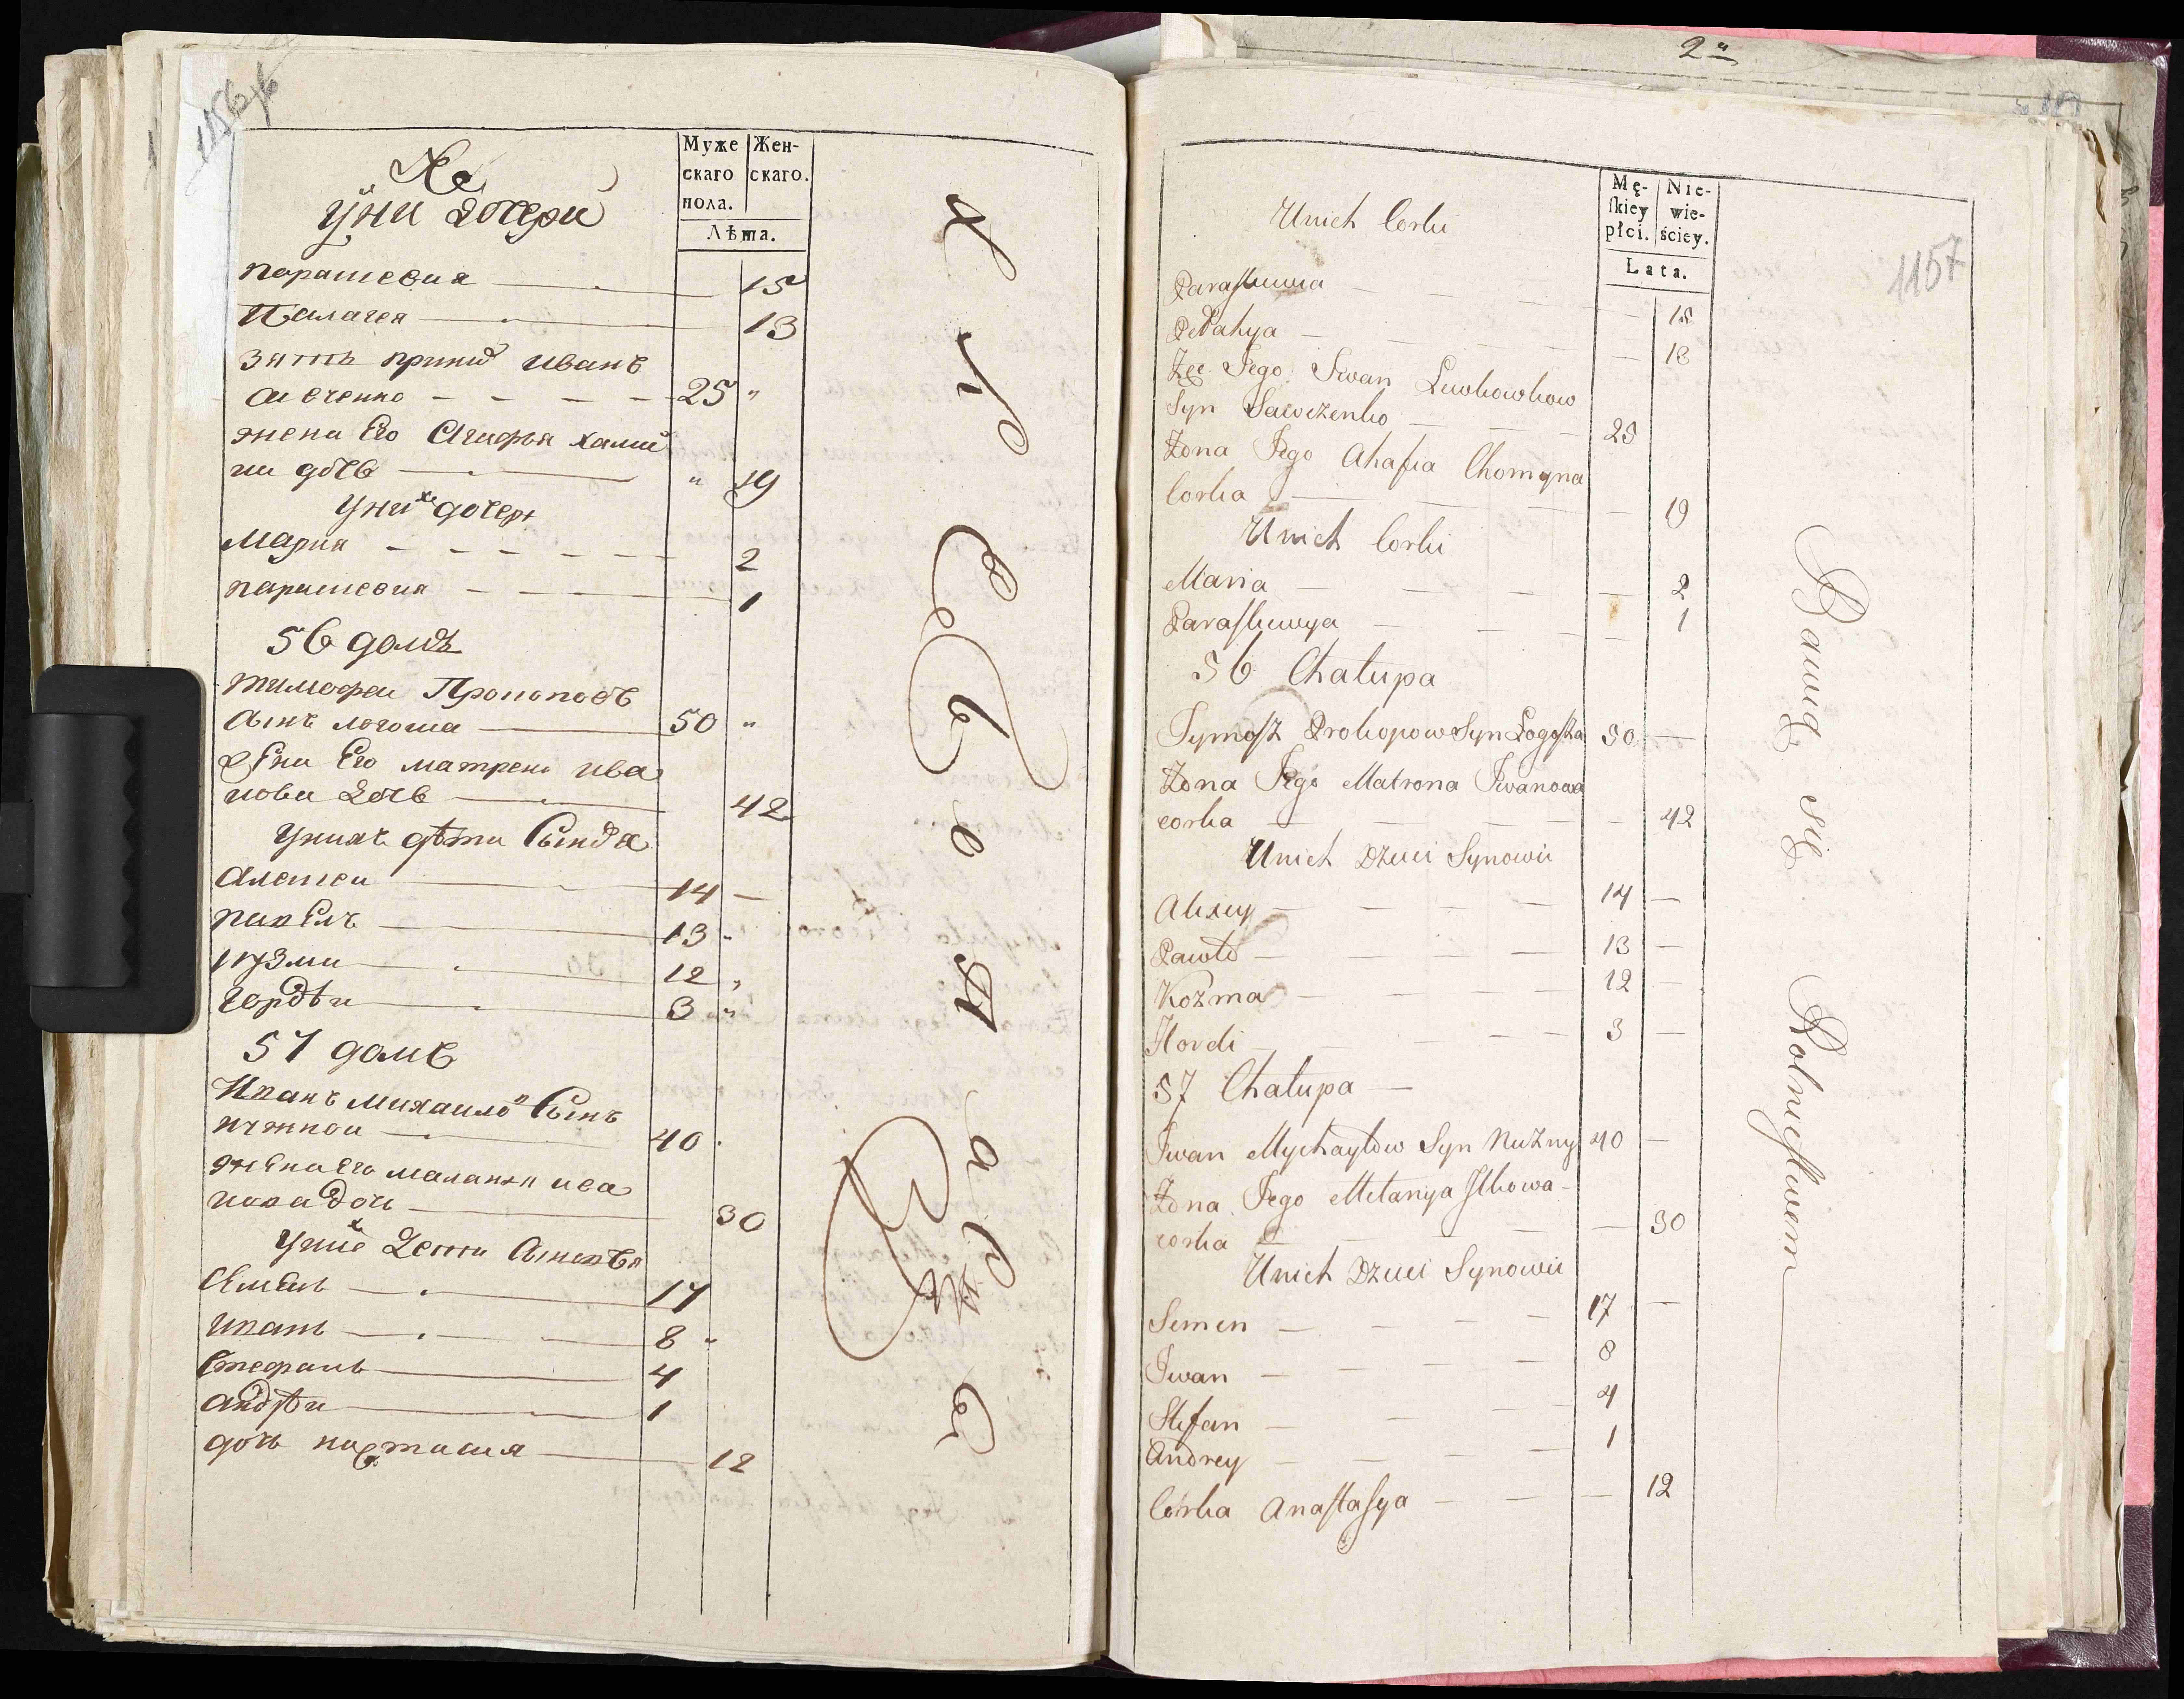 1156
Муже
скаго
пола.
Жен-
скаго.
Лѣта.
х
уни дочери
парашевия 15
Палагея 13
зять прииш Иванъ
Савченко 25 "
жена Его Агафья хоми
на дочь " 19
уних дочери
Мария 2
парашевия 1
56 домъ
тимофеи Прокоповъ
сынъ логоша 50 "
жена Его матрена ива
нова дочь 42
унихъ дѣти Сынов я
алексеи 14 —
павелъ 13 "
кузма 12 "
гордѣи 3 "
57 домъ
Иванъ михаило в Сынъ
нужнои 40
жена Его маланья ива
нова дочь 30
уних дети Сыновья
Семенъ 17
иванъ 8 "
Стефанъ 4
андрѣи 1
дочь настасия 12
2ª
1157
Mę-
ſkiey
płci.
Nie-
wie-
ściey.
Lata.
Unich Corki
Paraſkiwia — 15
Pelahya — 13
Zęc Jego Iwan Lewkowkow
Syn Sawczenko 25
Zona Jego Ahafia Chomyna
Corka — 19
Unich Corki
Maria — 2
Paraſkiwya — 1
56 Chałupa
Tymoſz Prokopow Syn Łogoſza 50 —
Zona Jego Matrona Iwanowa
corka — 42
Unich Dzieci Synowie
Alixiy 14 —
Pawło 13 —
Kozma 12 —
Hordi 3 —
57 Chałupa —
Iwan Mychayłow Syn Nużny 40 —
Zona Jego Melanya Ilkowa
corka — 30
Unich Dzieci Synowie
Semen 17 —
Iwan 8
Stefan 4
Andrey 1
Córka Anaſtaſya — 12
Bawią się Rolnictwem